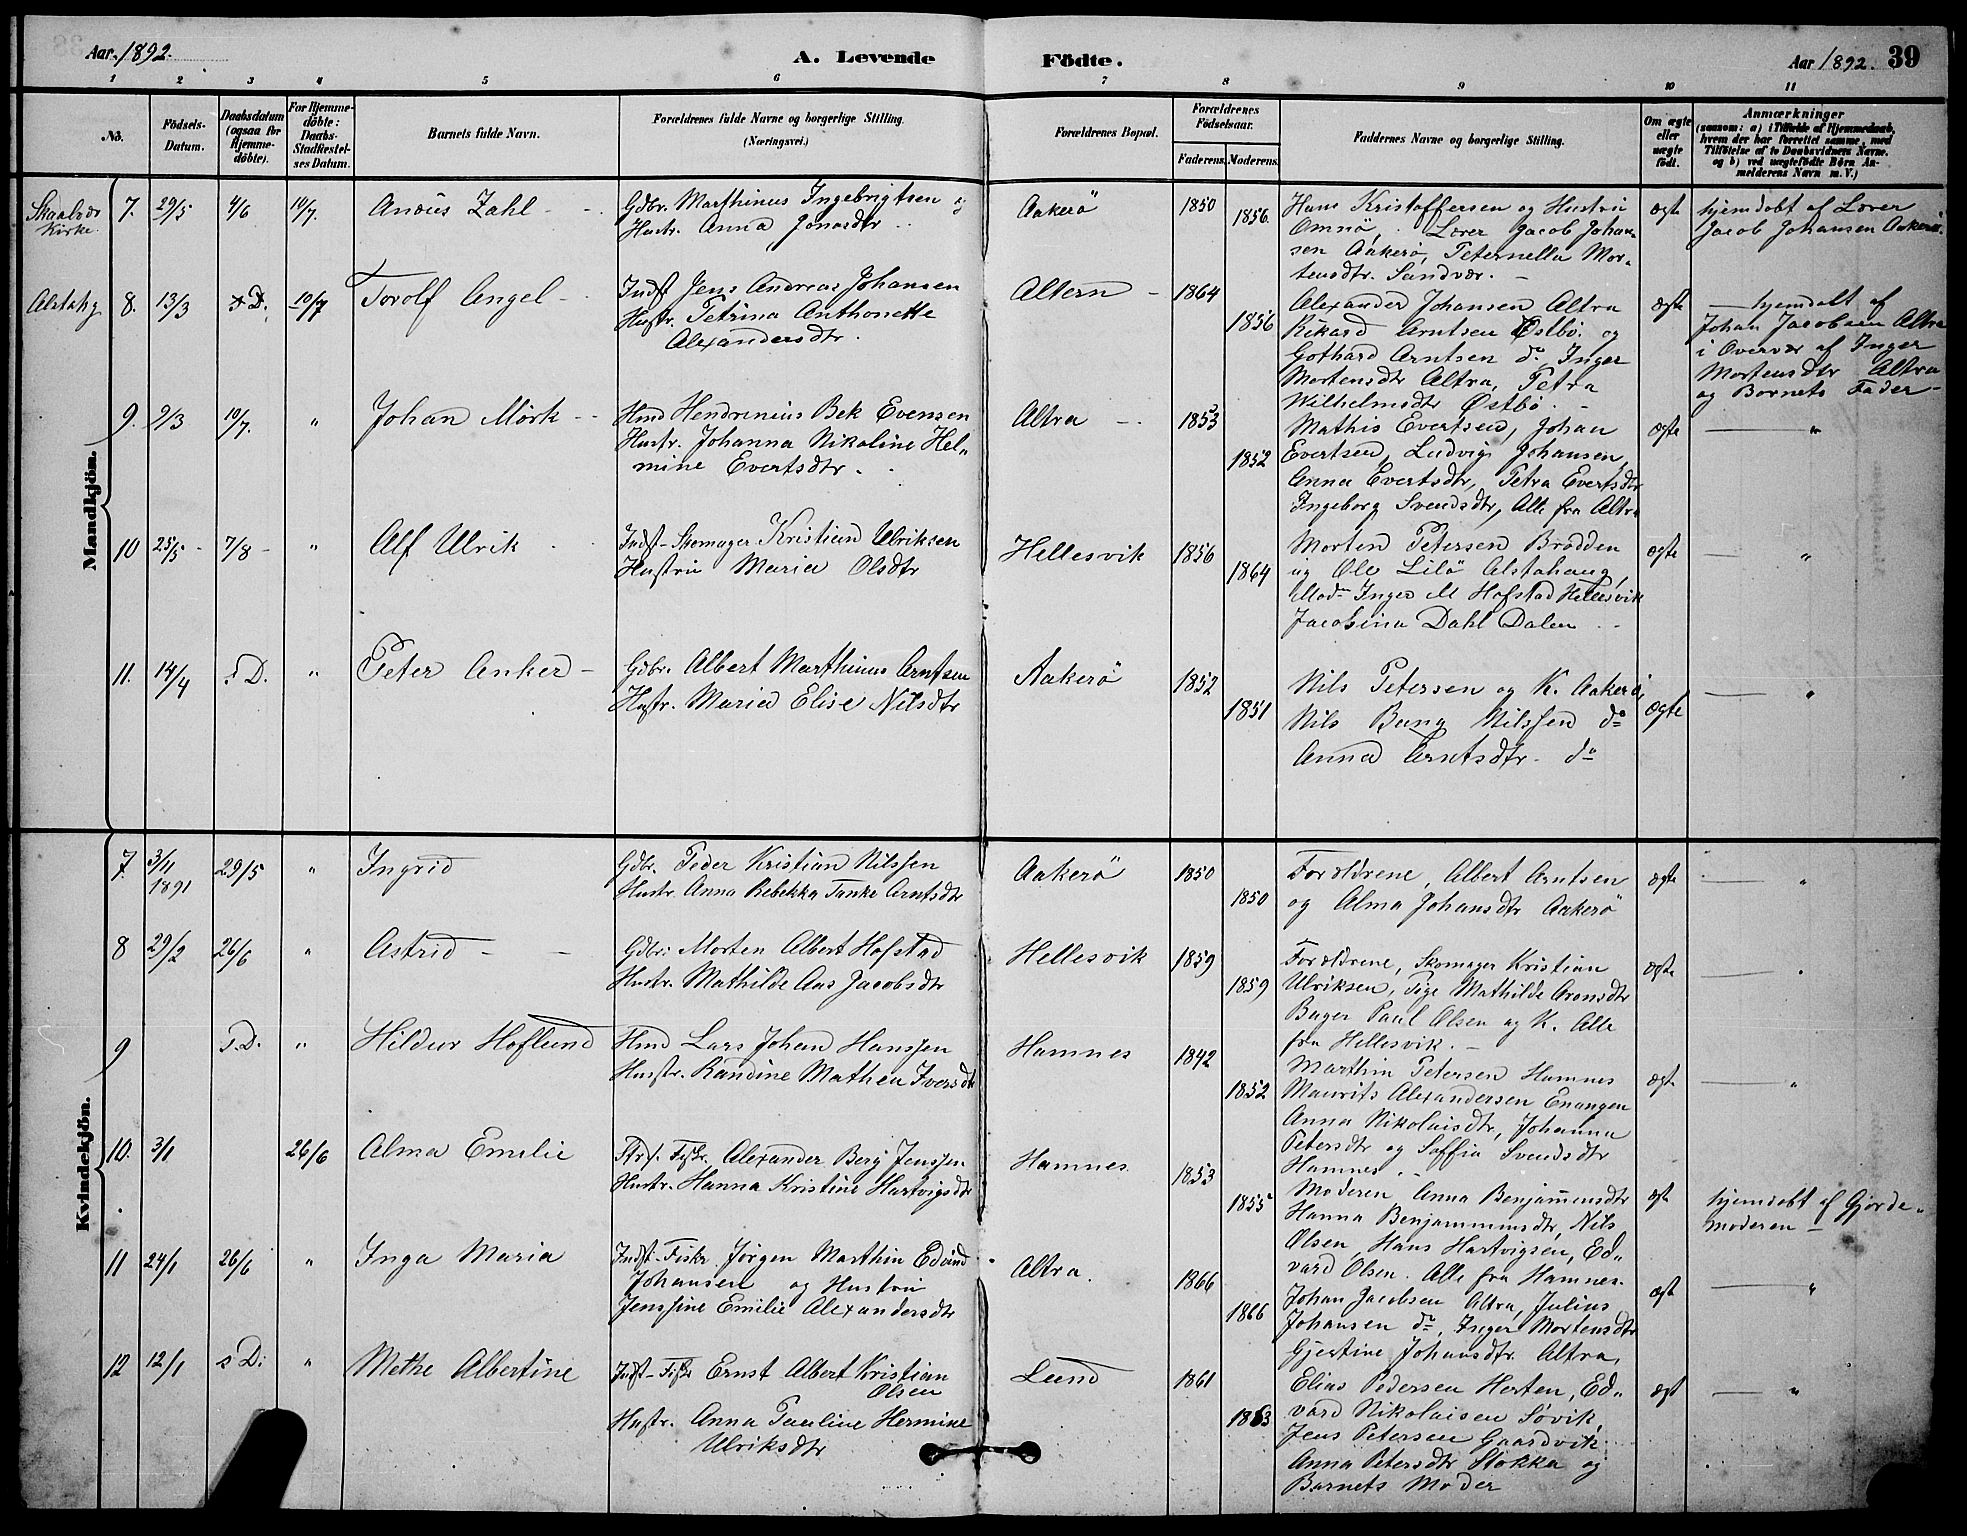 Aar 1892.
A. Levende Födte.
Aar 1892. 39
1 2 3 4 5 6 7 8 9 10 11
No.
Födsels-Datum.
Daabsdatum (ogsaa for Hjemme-döbte).
For Hjemme-döbte: Daabs-Stadfestel-ses Datum.
Barnets fulde Navn.
Forældrenes fulde Navne og borgerlige Stilling.
(Næringsvei.)
Forældrenes Bopæl.
Forældrenes Födselsaar.
Faderens. Moderens.
Faddernes Navne og borgerlige Stilling.
Om ægte eller uægte födt.
Anmærkninger
(saasom: a) i Tilfælde af Hjemmedaab,
hvem der har forrettet samme, med
Tilföielse af to Daabsvidners Navne.
og b) ved uægtefödte Börn An-
melderens Navn m. V.)
Mandkjön.
Skaalvær Kirke
7. 29/5 4/6 10/7. Anæus Zahl
Gdbr. Marthinus Ingebrigtsen og
Hustr. Anna Jonasdtr
Aakerö 1850 1856
Hans Kristoffersen og Hustru
Omnö, Lærer Jacob Johan-
sen Aakerö, Peternella Mor-
tensdtr. Sandvær.
ægte
hjemdöbt af Lærer
Jacob Johansen Aakerö.
Alstahg
8. 13/3 s.D. 10/7 Torolf Angel
Indst Jens Andreas Johansen
Hustr. Petrina Anthonette
Alexandersdtr.
Altern 1864 1856
Alexander Johansen Altra
Rikard Arntsen Östbö og
Gothard Arntsen do Inger
Mortensdtr Altra, Petra
Wilhelmsdtr Østbö.
ægte
hjemdøbt af
Johan Jacobsen Altra
i Overvær af Inger
Mortensdtr Altra
og Barnets Fader
9. 2/3 10/7. " Johan Mörk
Hmd Hendrenius Bek Evensen
Hustr. Johanna Nikoline Hel-
mine Evertsdtr.
Altra 1853 1852
Mathis Evertsen, Johan
Evertsen, Ludvig Johansen,
Anna Evertsdtr, Petra Evertsdtr
Ingeborg Svendsdtr, Alle fra Altra
ægte "
10 25/5 7/8 " Alf Ulrik
Indst-Skomager Kristian Ulriksen
Hustru Maria Olsdtr
Hellesvik 1856 1864
Morten Petersen Brodden
og Ole Lilö Alstahaug,
Mod. Inger M Hofstad Hellesvik
Jacobina Dahl Dalen
ægte "
11. 14/4 s D. " Peter Anker
Gdbr. Albert Marthinus Arntsen
Hustr. Maria Elise Nilsdtr
Aakerö 1852 1851
Nils Petersen og K. Aakerö,
Nils Bang Nilssen do
Anna Arntsdtr. do
ægte "
Kvindekjön.
7. 3/11 1891 29/5 " Ingrid
Gdbr. Peder Kristian Nilssen
Hustr. Anna Rebekka Tanke Arntsdtr
Aakerö 1850 1850
Forældrene, Albert Arntsen
og Alma Johansdtr Aakerö
ægte "
8 29/2 26/6 " Astrid
Gdbr: Morten Albert Hofstad
Hustr. Mathilde Aas Jacobsdtr
Hellesvik 1859 1859
Forældrene, Skomager Kristian
Ulriksen, Pige Mathilde Aronsdtr
Bager Paul Olsen og K. Alle
fra Hellesvik.
ægte "
9 s.D. " Hildur Hoflund
Hmd Lars Johan Hanssen
Hustr. Randine Mathea Iversdtr
Hamnes 1842 1852
Marthin Petersen Hamnes
Maurits Alexandersen Enangen
Anna Nikolaisdtr, Johanna
Petersdtr og Soffia Svendsdtr
Hamnes.
ægte "
10. 3/1 26/6 Alma Emilie
Alexander Berg Jenssen
Hustr. Hanna Kristine Hartvigsdtr
Hamnes 1853 1855
Moderen Anna Benjaminsdtr
Hanna Benjaminsdtr, Nils
Olsen, Hans Hartvigsen, Ed-
vard Olsen. Alle fra Hamnes.
ægt
hjemdöbt af Gjorde-
moderen
11 24/1 26/6 " Inga Maria
Indst-Fisker Jörgen Marthin Edvind
Johansen og Hustru
Jenssine Emilie Alexandersdtr
Altra. 1866 1866
Johan Jacobsen Altra, Julius
Johansen do, Inger Mortensdtr
Gjertine Johansdtr. Altra.
ægt "
12 12/1 s D: " Methe Albertine
Indst-Fisk Ernst Albert Kristian
Olsen
Hustr. Anna Pauline Hermine
Ulriksdtr
Lund 1861 1863
Elias Pedersen Herten, Ed-
vard Nikolaisen Sövik,
Jens Petersen Gaardvik
Anna Petersdtr Stokka og
Barnets Moder
ægt "